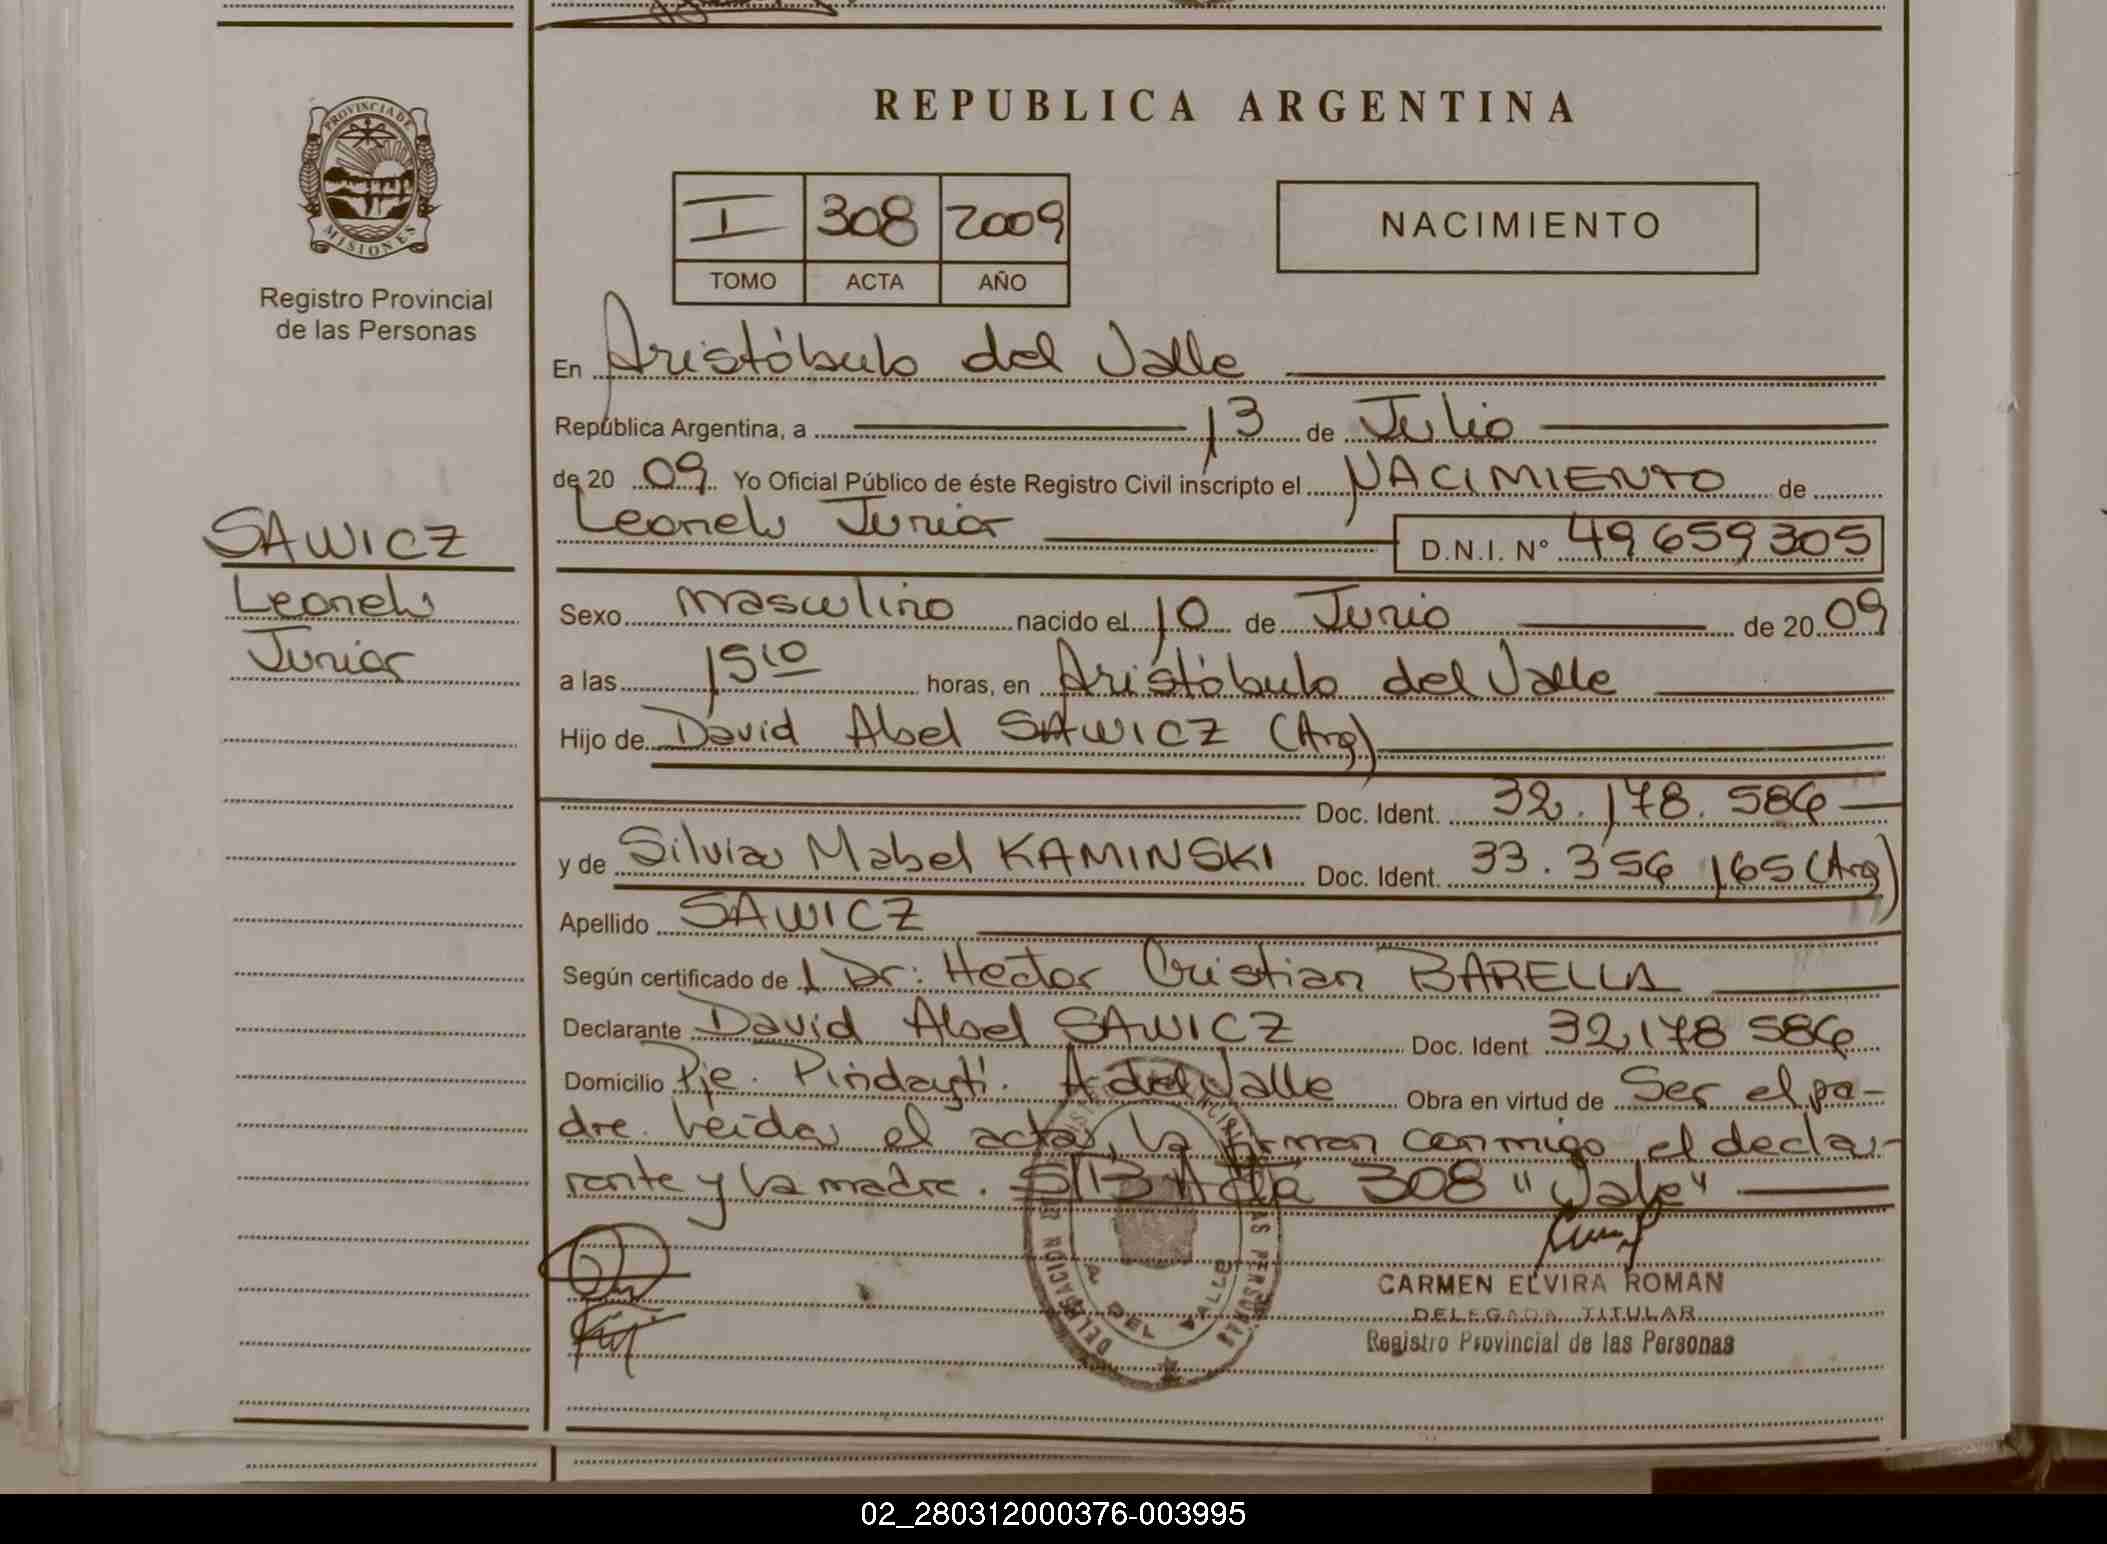 REPUBLICA ARGENTINA
PROVINCIA DE MISIONES
Registro Provincial
de las Personas
I 308 2009
TOMO ACTA AÑO
NACIMIENTO
En Aristóbulo del Valle
República Argentina, a 13 de Julio
de 20 09 Yo Oficial Público de éste Registro Civil inscripto el NACIMIENTO de
Leonel Junior D.N.I. N° 49659305
SAWICZ
Leonel
Junior
Sexo masculino nacido el 10 de Junio de 20 09
a las 15 10 horas, en Aristóbulo del Valle
Hijo de David Abel SAWICZ (Arg)
Doc. Ident. 32.178.586
y de Silvia Mabel KAMINSKI Doc. Ident. 33.356 165 (Arg)
Apellido SAWICZ
Según certificado de l Dr: Hector Cristian BARELLA
Declarante David Abel SAWICZ Doc. Ident 32,178 586
Domicilio Pje. Pindayti. A del Valle Obra en virtud de Ser el pa-
dre. Leida el acta, la firman conmigo el decla-
rante y la madre. S/B Acta 308 "Vale"
CARMEN ELVIRA ROMAN
DELEGADA TITULAR
Registro Provincial de las Personas
DELEGACION A DEL VALLE
02_280312000376-003995